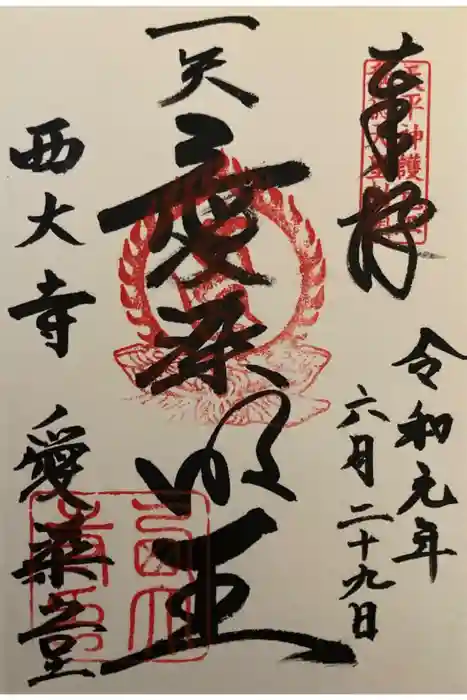 奉拝
天平神護
令和元年
六月二十九日
一矢
愛染明王
西大寺
愛染堂